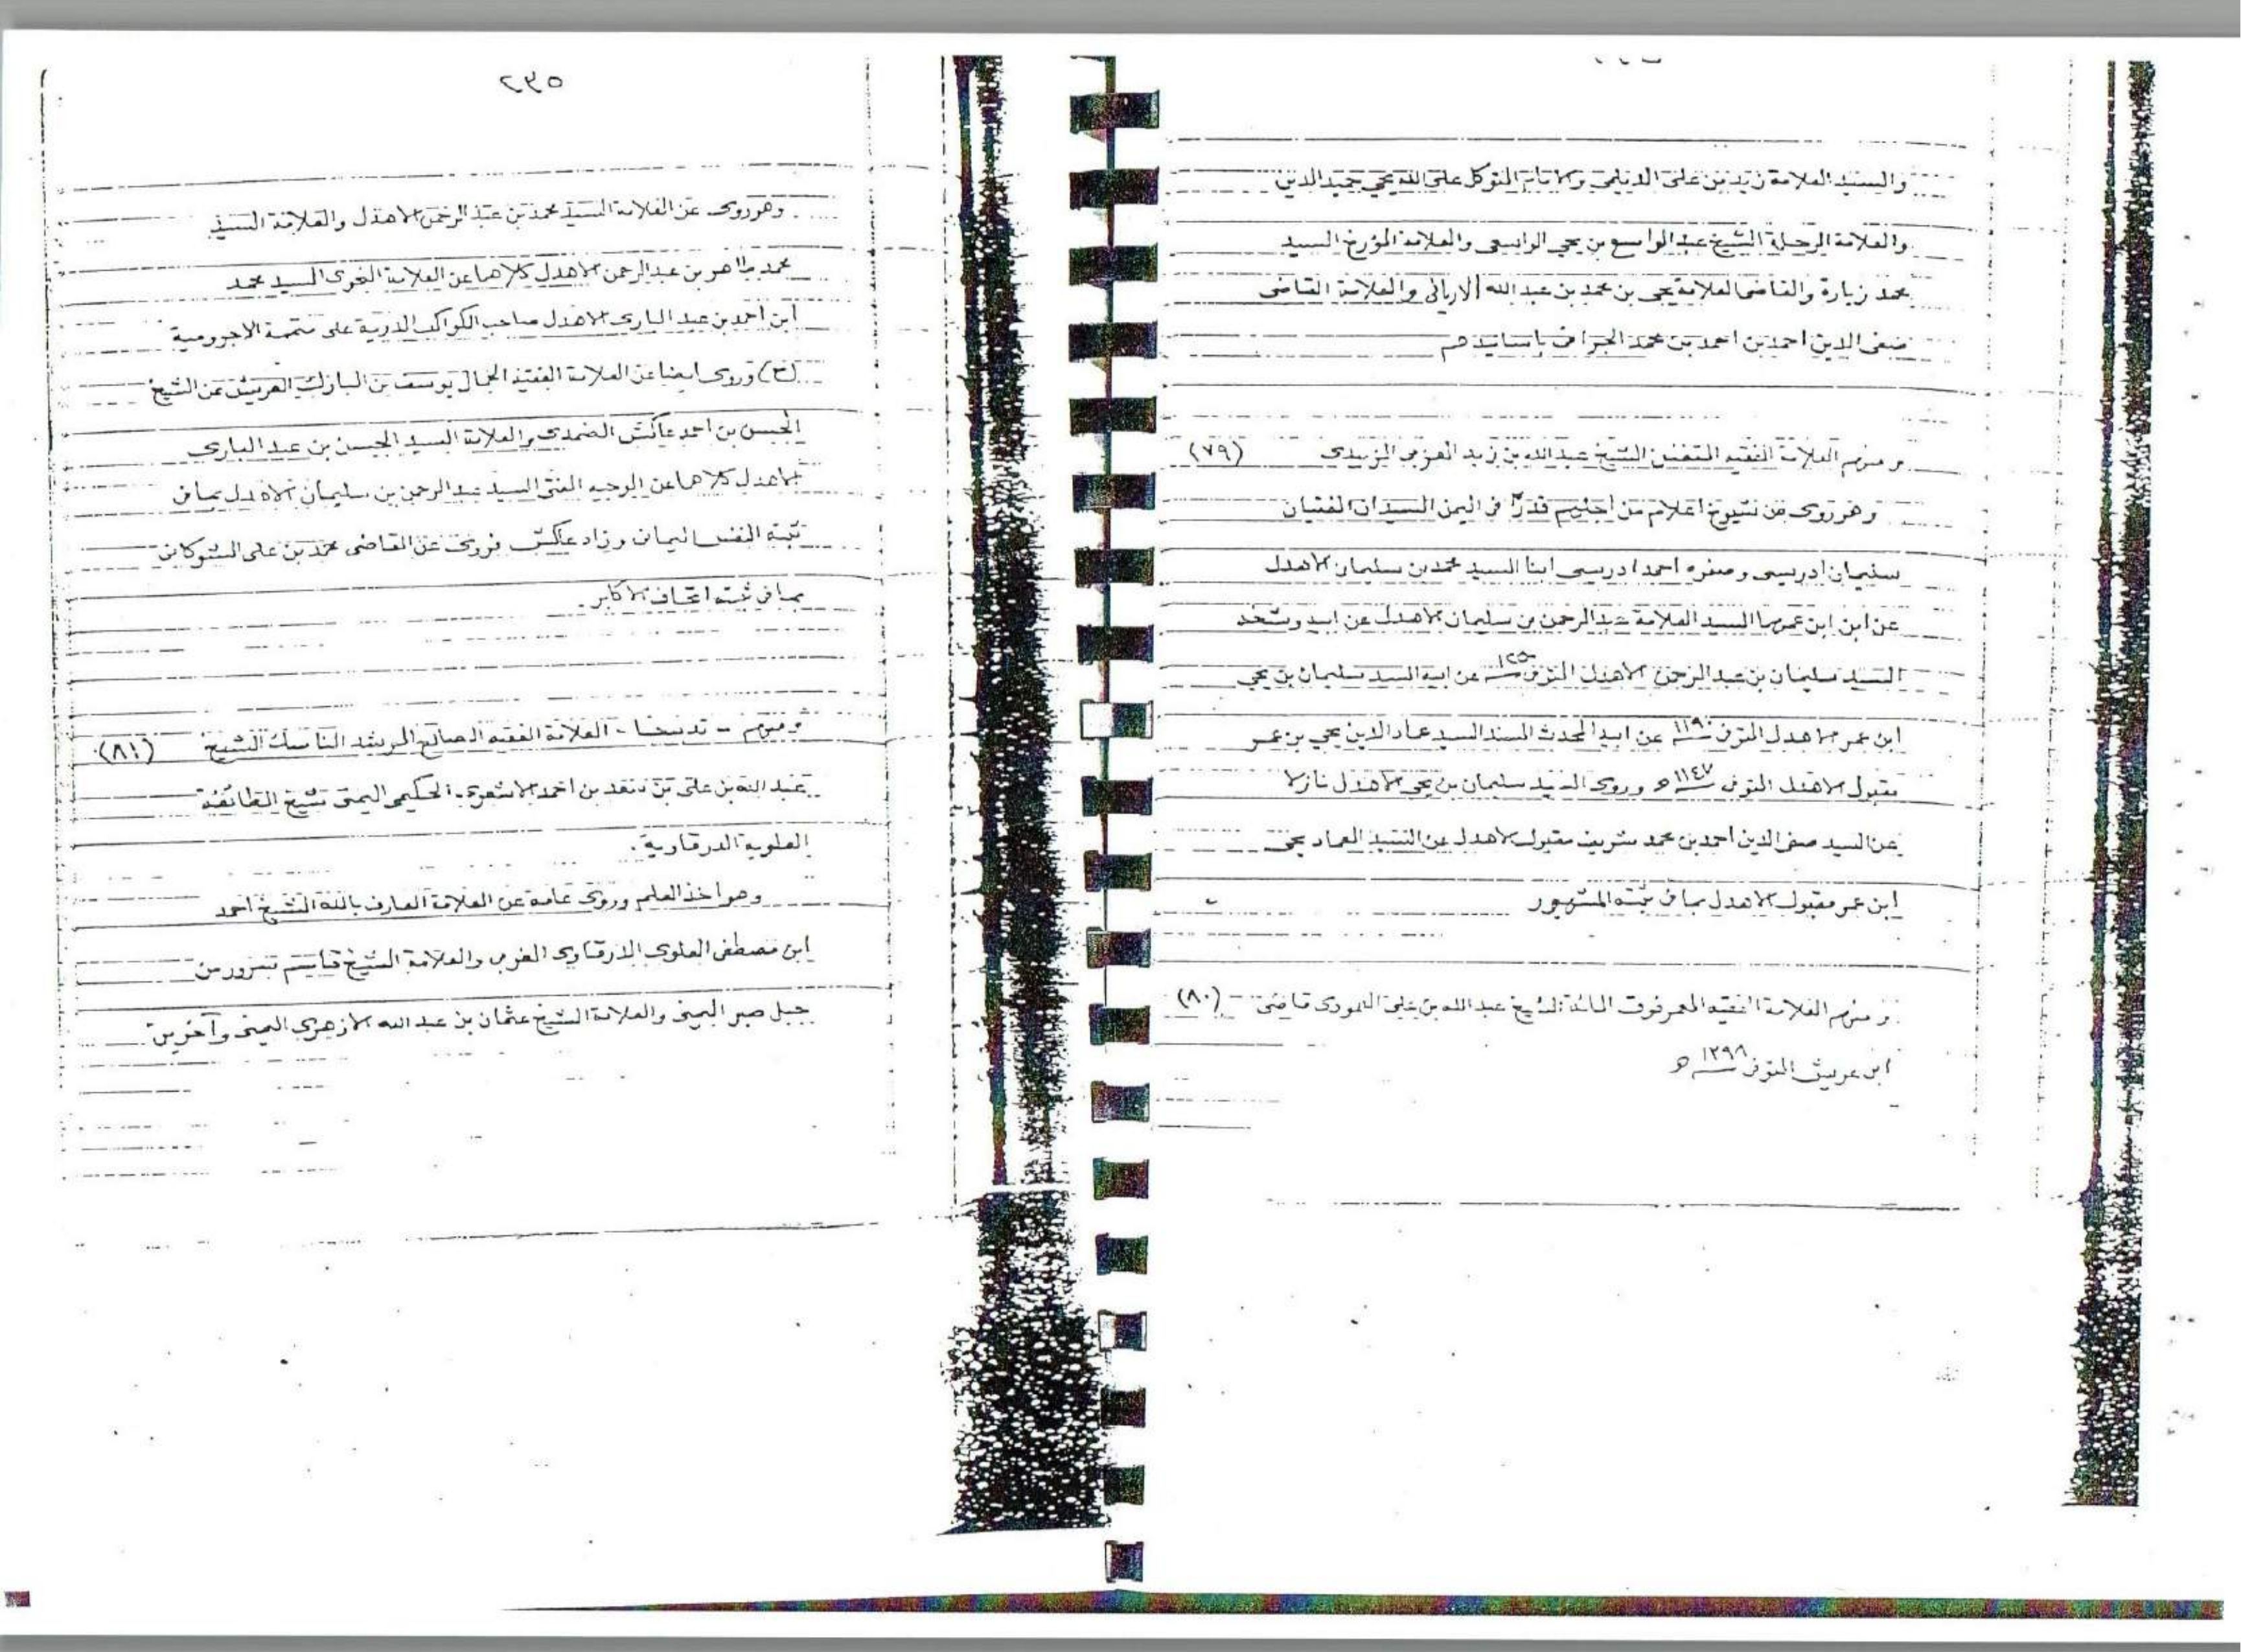 والسيد العلامة زيد بن على الديلمى والامام المتوكل على الله يحيى حميد الدين
والعلامة الرحلة الشيخ عبد الواسع بن يحي الواسعى والعلامة المؤرخ السيد
محمد زبارة والقاضى العلامة يحي بن محمد بن عبد الله الاريانى والعلامة القاضى
صفى الدين احمد بن احمد بن محمد الجرافى بأسانيدهم
ومنهم العلامة الفقيه المتفنن الشيخ عبد الله بن زيد المغربى الزبيدى (٧٩)
وهو روى عن شيوخ اعلام من أجلهم قدرًا فى اليمن السيدان المفتيان
سليمان ادريسى وصنوه احمد ادريسى ابنا السيد محمد بن سليمان الاهدل
عن ابن ابن عمهما السيد العلامة عبد الرحمن بن سليمان الاهدل عن ابيه وشيخه
السيد سليمان بن عبد الرحمن الاهدل المتوفى عن ابيه السيد سليمان بن يحي
ابن عمر الاهدل المتوفى ١١٩٠ عن ابيه المحدث المسند السيد عماد الدين يحي بن عمر
مقبول الاهدل المتوفى ١١٤٧ هـ وروى السيد سليمان بن يحي الاهدل نازلا
عن السيد صفى الدين احمد بن محمد شريف مقبول الاهدل عن السيد العماد يحي
ابن عمر مقبول الاهدل بما فى ثبته المشهور
ومنهم العلامة الفقيه المعمر فوق المائة الشيخ عبد الله بن على العمودى قاضى (٨٠)
ابى عريش المتوفى ١٣٩٨ هـ
٢٣٥
وهو روى عن العلامة السيد محمد بن عبد الرحمن الاهدل والعلامة السيد
محمد طاهر بن عبد الرحمن الاهدل كلاهما عن العلامة النحوى السيد محمد
ابن أحمد بن عبد البارى الاهدل صاحب الكواكب الدرية على متممة الاجرومية
(ح) وروى ايضا عن العلامة الفقيه الجمال يوسف بن المبارك العريشى عن الشيخ
الحسن بن احمد عاكش الضمدى والعلامة السيد الحسن بن عبد البارى
الاهدل كلاهما عن الوجيه المفتى السيد عبد الرحمن بن سليمان الاهدل بما فى
ثبته النفس اليمانى وزاد عاكش فروى عن القاضى محمد بن على الشوكانى
بما فى ثبته اتحاف الاكابر.
ومنهم - تدبيجا - العلامة الفقيه الصالح المرشد الناسك الشيخ (٨١)
عبد الله بن على بن سعد بن احمد الاشعرى الحكيمى اليمنى شيخ الطائفة
العلوية الدرقاوية.
وهو اخذ العلم وروى عامة عن العلامة العارف بالله الشيخ احمد
ابن مصطفى العلوى الدرقاوى المغربى والعلامة الشيخ قاسم سرور من
جبل صبر اليمنى والعلامة الشيخ عثمان بن عبد الله الازهرى اليمنى وآخرين